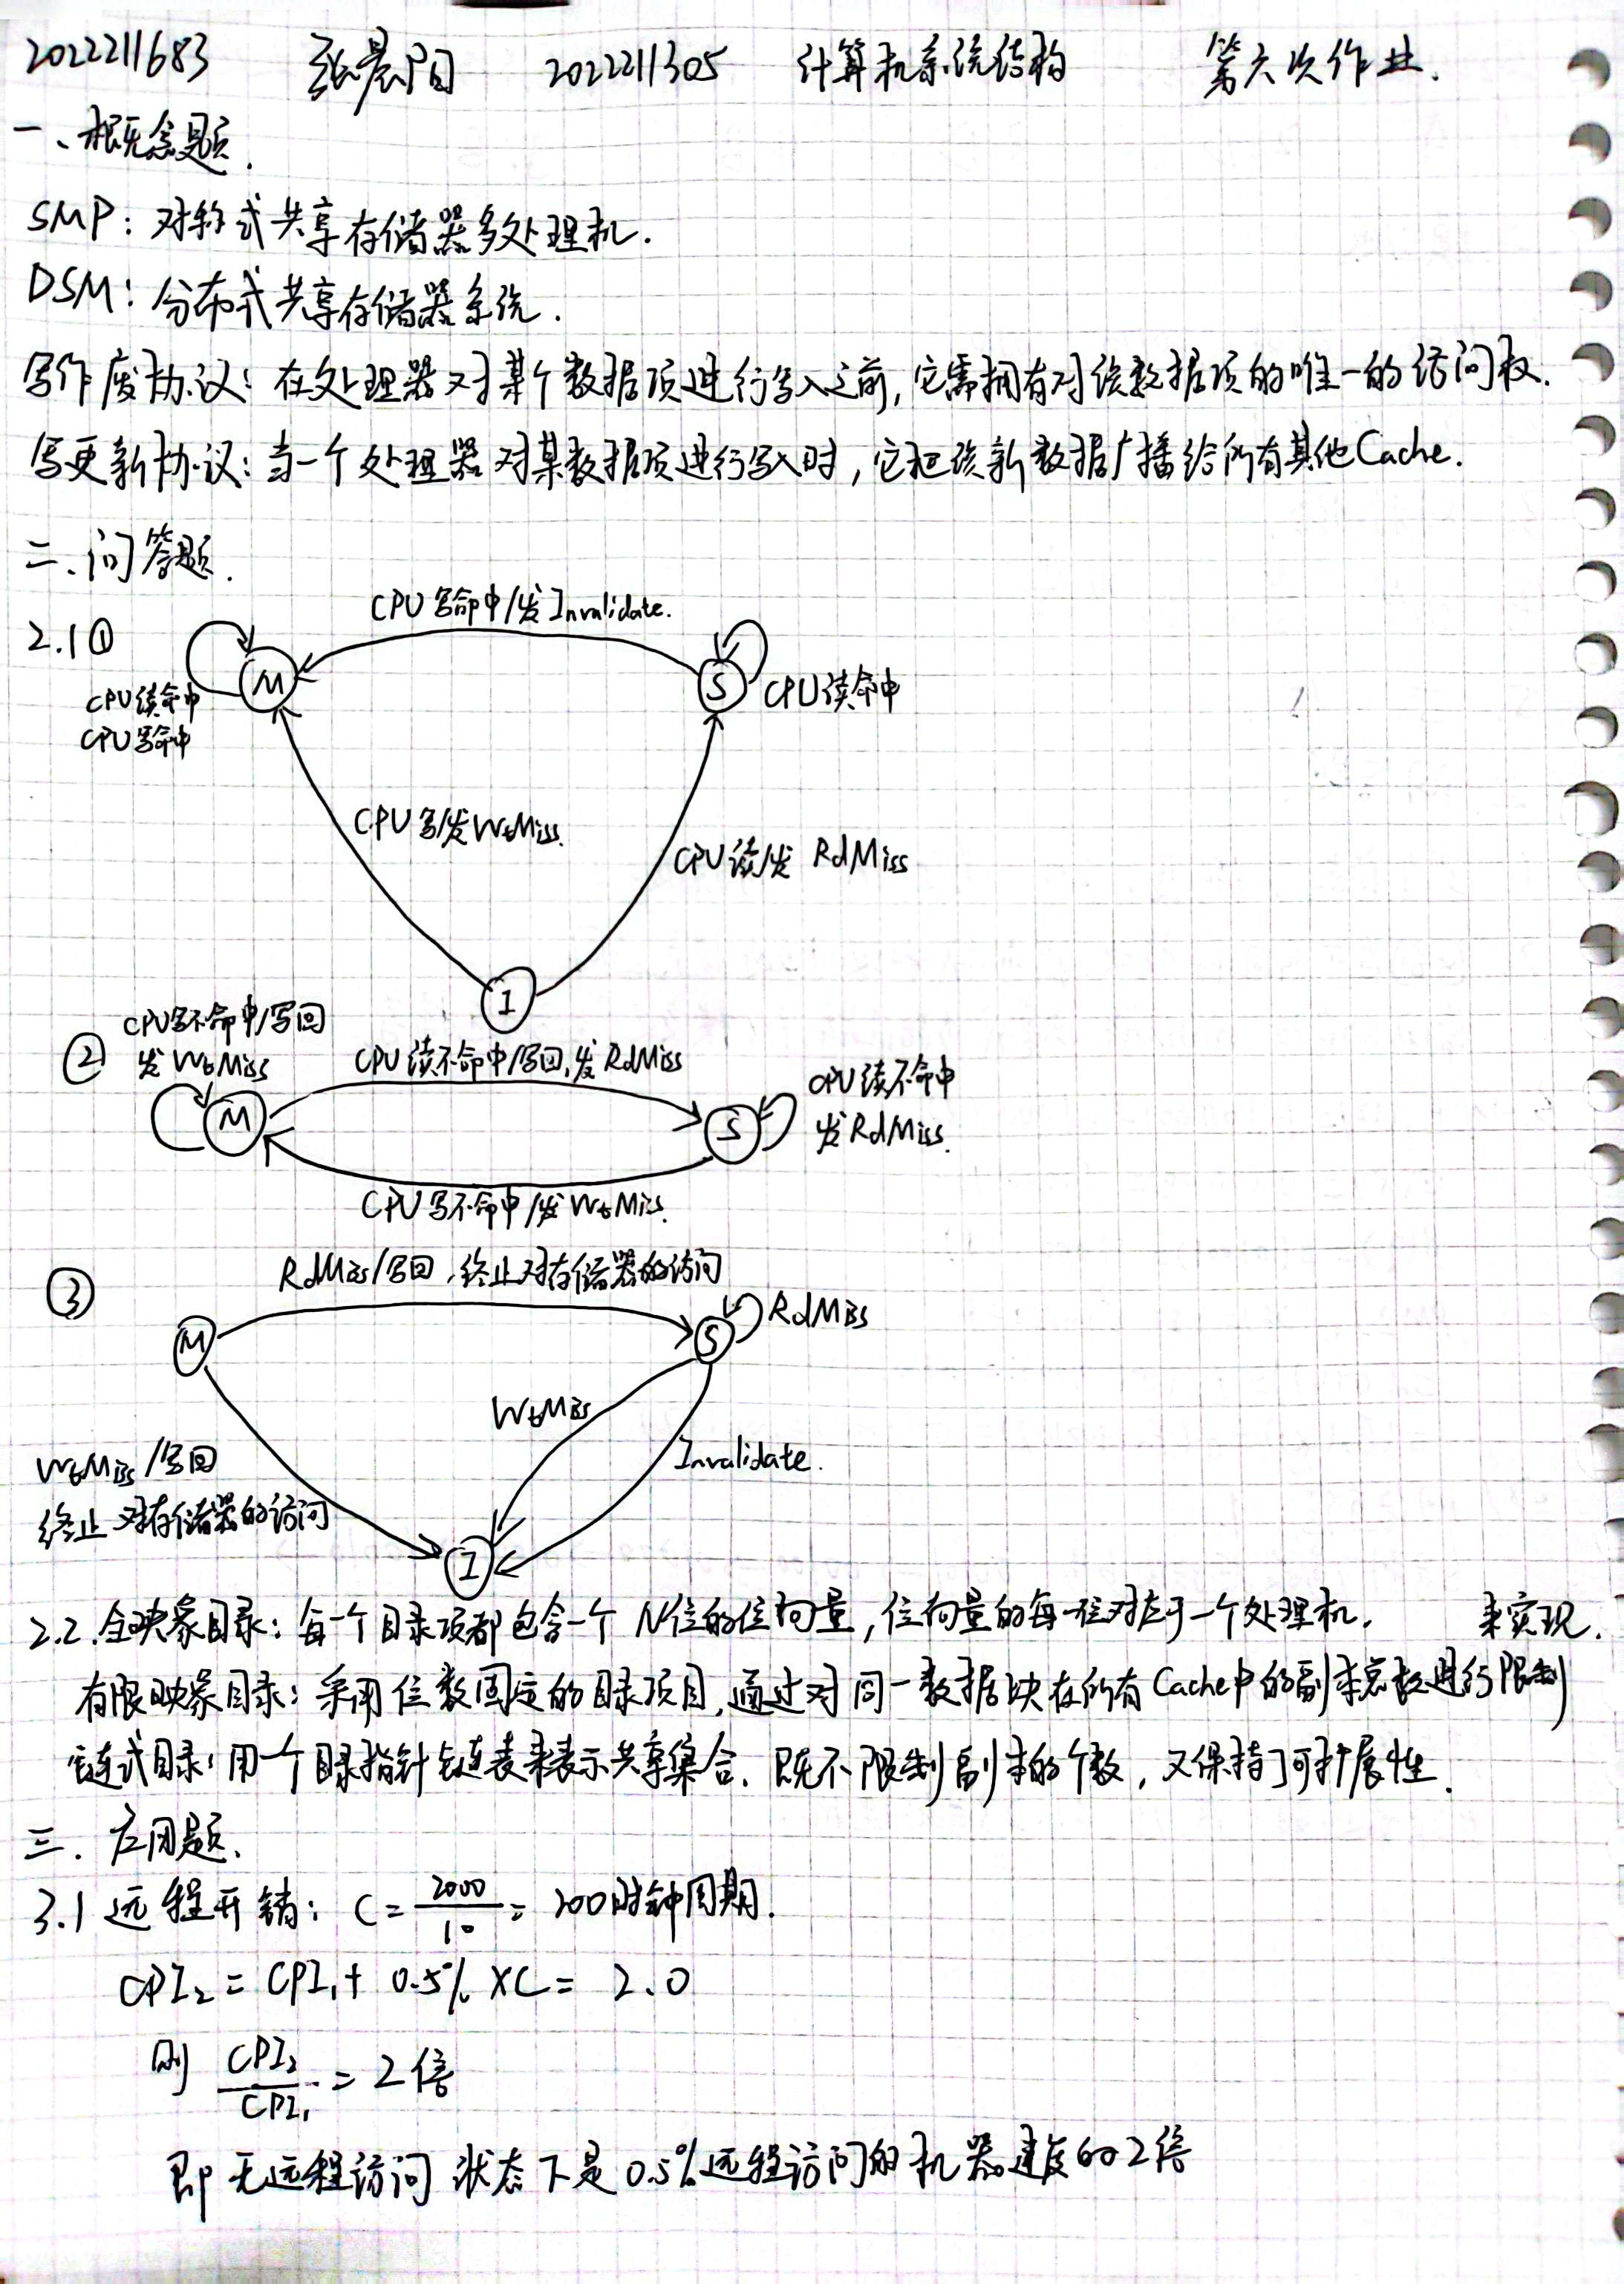 2022211683 张晨阳 2022211305 计算机系统结构 第六次作业.
一、概念题.
SMP: 对称式共享存储器多处理机.
DSM: 分布式共享存储器系统.
写作废协议: 在处理器对某个数据项进行写入之前, 它需拥有对该数据项的唯一的访问权.
写更新协议: 当一个处理器对某数据项进行写入时, 它把该新数据广播给所有其他Cache.
二、问答题.
2.1①
CPU写命中/发Invalidate.
M
S
CPU读命中
CPU读命中
CPU写命中
CPU写/发WtMiss.
CPU读/发 RdMiss
I
②
CPU写不命中/写回
发 WtMiss
CPU读不命中/写回,发RdMiss
CPU读不命中
发RdMiss.
M
S
CPU写不命中/发WtMiss.
③
RdMiss/写回,终止对存储器的访问
M
S
RdMiss
WtMiss
Invalidate.
WtMiss/写回
终止对存储器的访问
I
2.2.全映象目录: 每一个目录项都包含一个 N位的位向量, 位向量的每一位对应于一个处理机.
来实现.
有限映象目录: 采用位数固定的目录项目, 通过对同一数据块在所有Cache中的副本总数进行限制
链式目录: 用一个目录指针链表来表示共享集合. 既不限制副本的个数, 又保持了可扩展性.
三. 应用题.
3.1 远程开销: C = 2000/10 = 200时钟周期.
CPI₂ = CPI₁ + 0.5% × C = 2.0
则 CPI₂/CPI₁ = 2倍
即 无远程访问 状态下是0.5%远程访问的机器速度的2倍